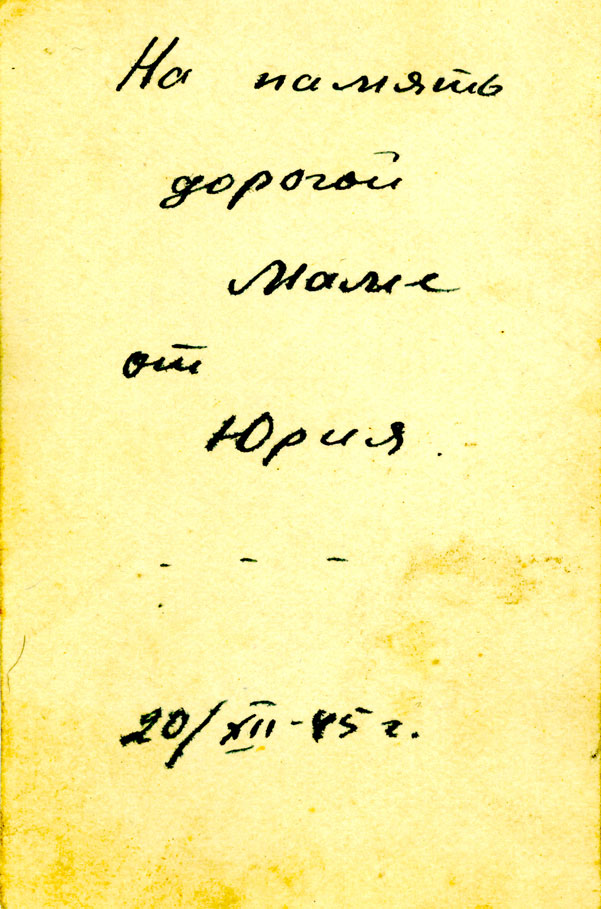 На память
дорогой
маме
от
Юрия.
- - -
20/XII-45 г.